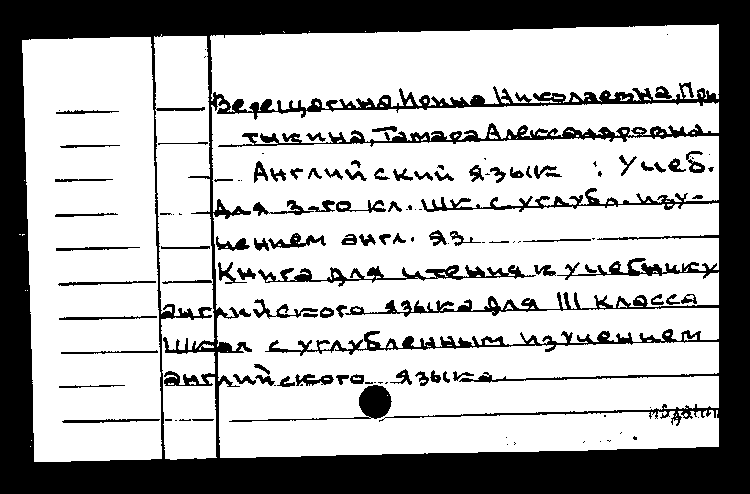 Верещагина, Ирина Николаевна, При
тыкина, Тамара Александровна.
Английский язык : Учеб.
для 3-го кл. шк. с углубл. изу-
чением англ. яз.
Книга для чтения к учебнику
английского языка для III класса
школ с углубленным изучением
английского языка.